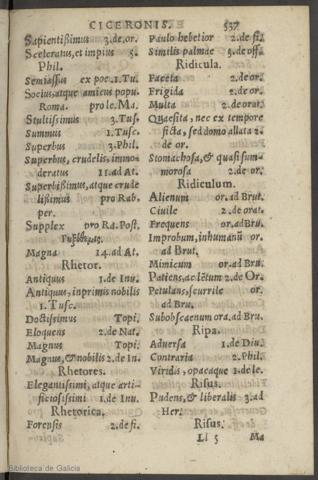 CICERONIS.
537
Sapientißimus 3.de.or.
Sceleratus, et impius 5.
Phil.
Semiassus ex poe.1.Tu.
Socius, atque amicus popu.
Roma. pro le.Ma.
Stultissimus 3.Tus.
Summus 1.Tusc.
Superbus 3.Phil.
Superbus, crudelis, immo-
deratus 11.ad At.
Superbißimus, atque crude
lißimus pro Rab.
per.
Supplex pro Ra.Post.
Magna 14.ad At.
Rhetor.
Antiquus 1.de Inu.
Antiquus, inprimis nobilis
1.Tusc.
Doctissimus Topi.
Eloquens 2.de Nat.
Magnus Topi.
Magnus, & nobilis 2.de In.
Rhetores.
Elegantissimi, atque arti-
ficiosissimi 1.de Inu.
Rhetorica.
Forensis 2.de fi.
Paulo hebetior 2.de fi.
Similis palmae 5.de off.
Ridicula.
Faceta 2.de or.
Frigida 2.de or.
Multa 2.de orat.
Quaesita, nec ex tempore
ficta, sed domo allata 2.
de or.
Stomachosa, & quasi sum-
morosa 2.de or.
Ridiculum.
Alienum or.ad Brut.
Ciuile 2.de orat.
Frequens or.ad Bru.
Improbum, inhumanũ or.
ad Brut.
Mimicum or.ad Bru.
Patiens, ac lẽtum 2.de Or.
Petulans, scurrile or.
ad Bru.
Subobscaenum ora.ad Bru.
Ripa.
Aduersa 1.de Diu.
Contraria 2.Phil.
Viridis, opacaque 1.de le.
Risus.
Pudens, & liberalis 3.ad
Her.
Risus.
Ll 5 Ma
Biblioteca de Galicia